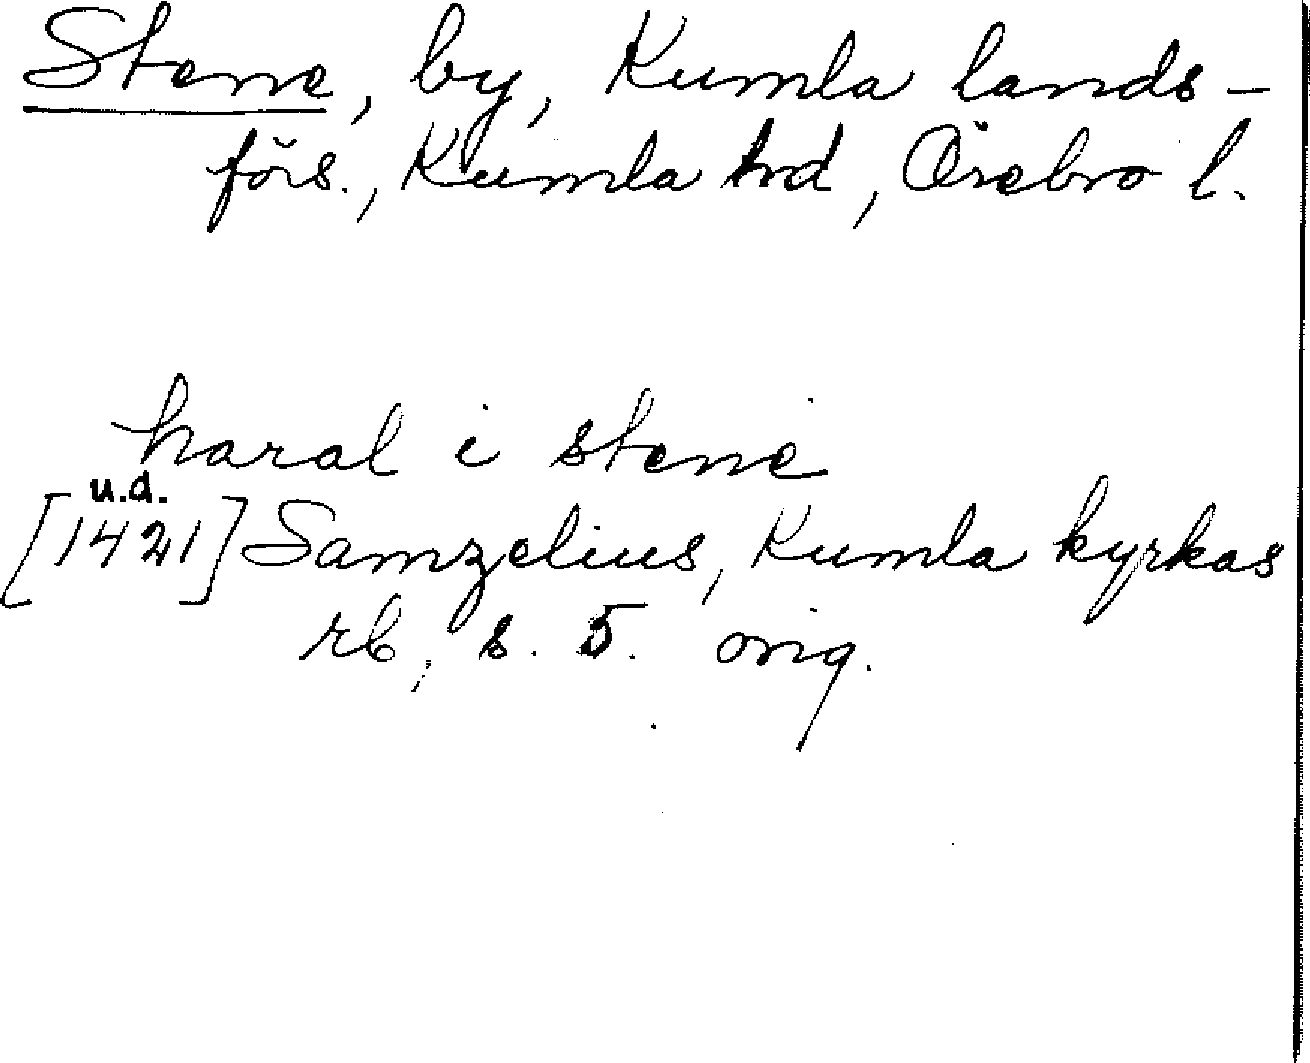 Stene, by, Kumla lands-
förs., Kumla hd, Örebro l.
haral i stene
u.d.
[1421] Samzelius, Kumla kyrkas
rb, s. 5. orig.